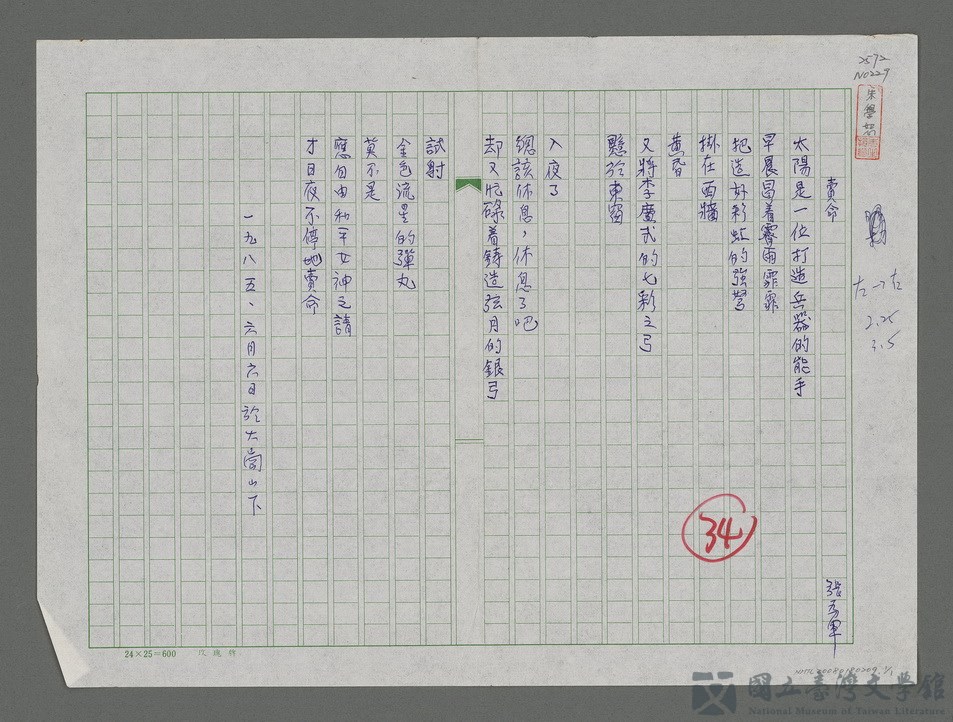 2572
N0229
朱學恕
賣命
太陽是一位打造兵器的能手
早晨冒着霏雨霏霏
把造好彩虹的強弩
掛在西牆
黃昏
又將李廣式的七彩之弓
懸於東窗
入夜了
總該休息，休息了吧
却又忙碌着鑄造弦月的銀弓
試射
金色流星的彈丸
莫不是
應自由和平女神之請
才日夜不停地賣命
一九八五、六月六日於大崗山下
34
左→右
2.25
3.5
24×25=600
國立臺灣文學館
National Museum of Taiwan Literature